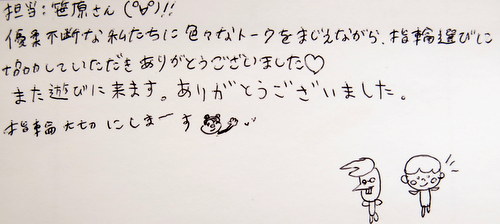 担当:笹原さん(°∀°)!!
優柔不断な私たちに色々なトークをまじえながら、指輪選びに
協力していただきありがとうございました♡
また遊びに来ます。ありがとうございました。
指輪大切にしまーす